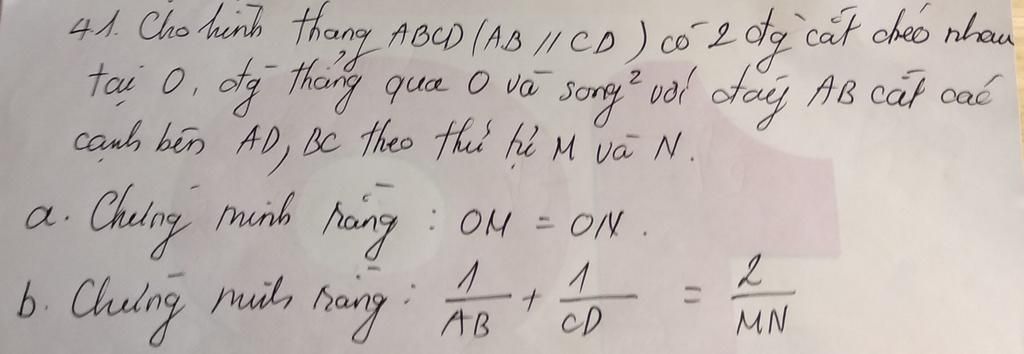 41. Cho hình thang ABCD (AB // CD) có 2 đg cắt chéo nhau
tại O, đg thẳng qua O và song² với đáy AB cắt các
cạnh bên AD, BC theo thứ tự M và N.
a. Chứng minh rằng : OM = ON.
b. Chứng minh rằng : 1/AB + 1/CD = 2/MN